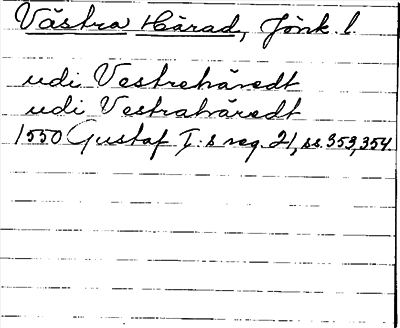 Västra Härad, Jönk. l.
udi Vestrehäredt
udi Vestrahäredt
1550 Gustaf I:s reg. 21, ss. 353, 354.